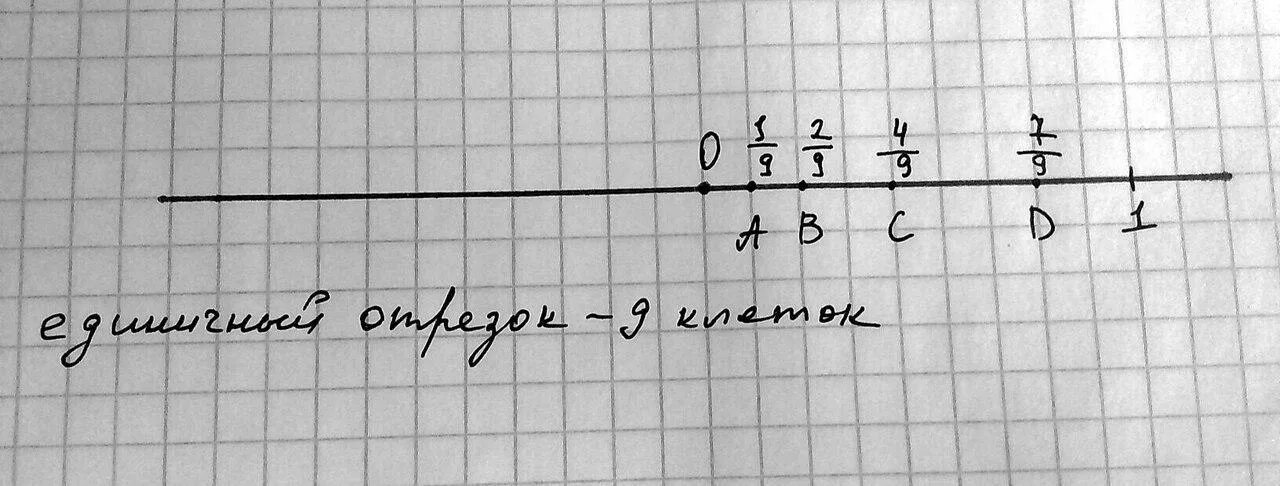 0 1/9 2/9 4/9 7/9
A B C D 1
единичный отрезок - 9 клеток